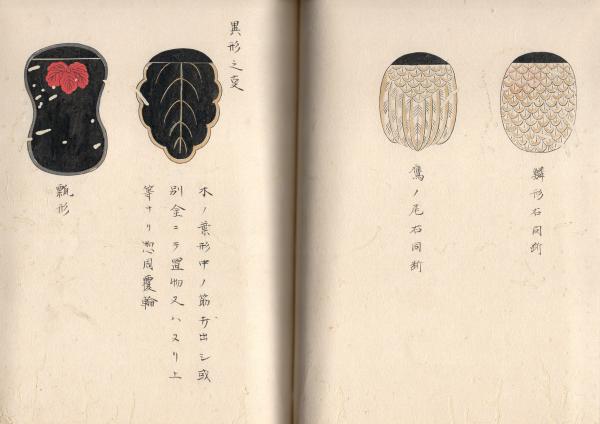 鱗形右同断
鷹ノ尾右同断
異形之変
木ノ葉形中ノ筋打出シ或
別金ニテ置物又ハスリ上
等ナリ惣周覆輪
瓢形